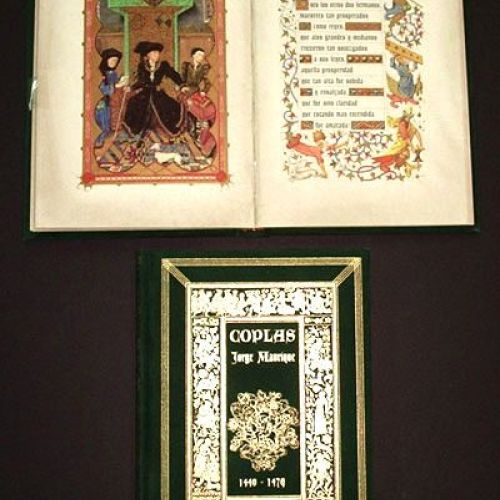 ues los otros dos hermanos,
maestres tan prosperados
como reyes,
que alos grandes y medianos
truxeron tan sojuzgados
a sus leyes,
aquella prosperidad
que tan alta fue subida
y ensalçada
que fue sino claridad
que estando mas encendida
fue amatada
COPLAS
Jorge Manrique
1440 - 1479